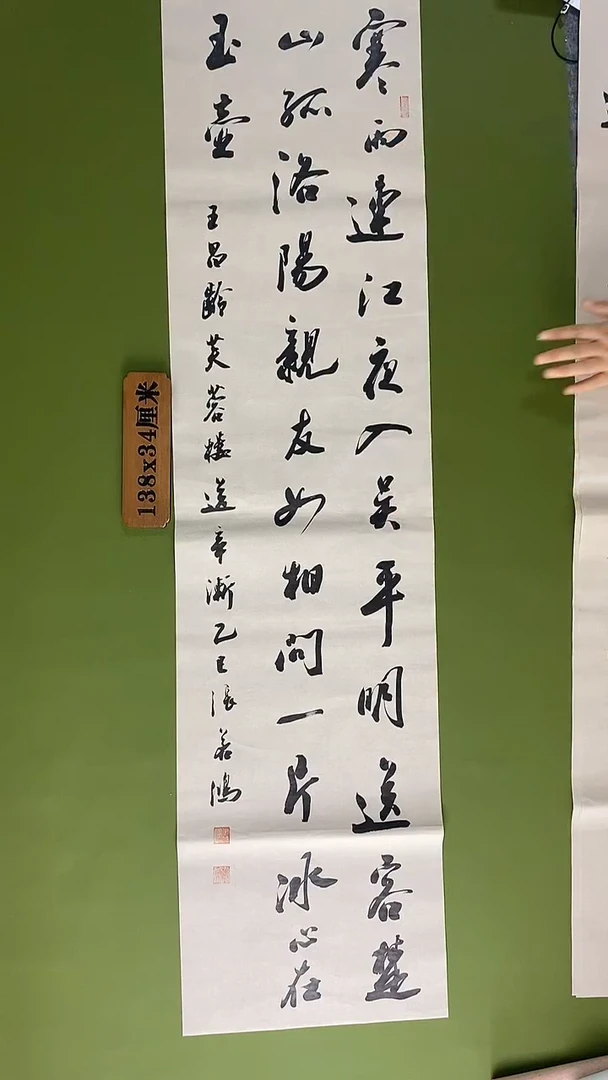 寒雨連江夜入吴平明送客楚
山孤洛陽親友如相問一片冰心在
玉壺 王昌齡芙蓉樓送辛漸乙巳張若鴻
138x34厘米